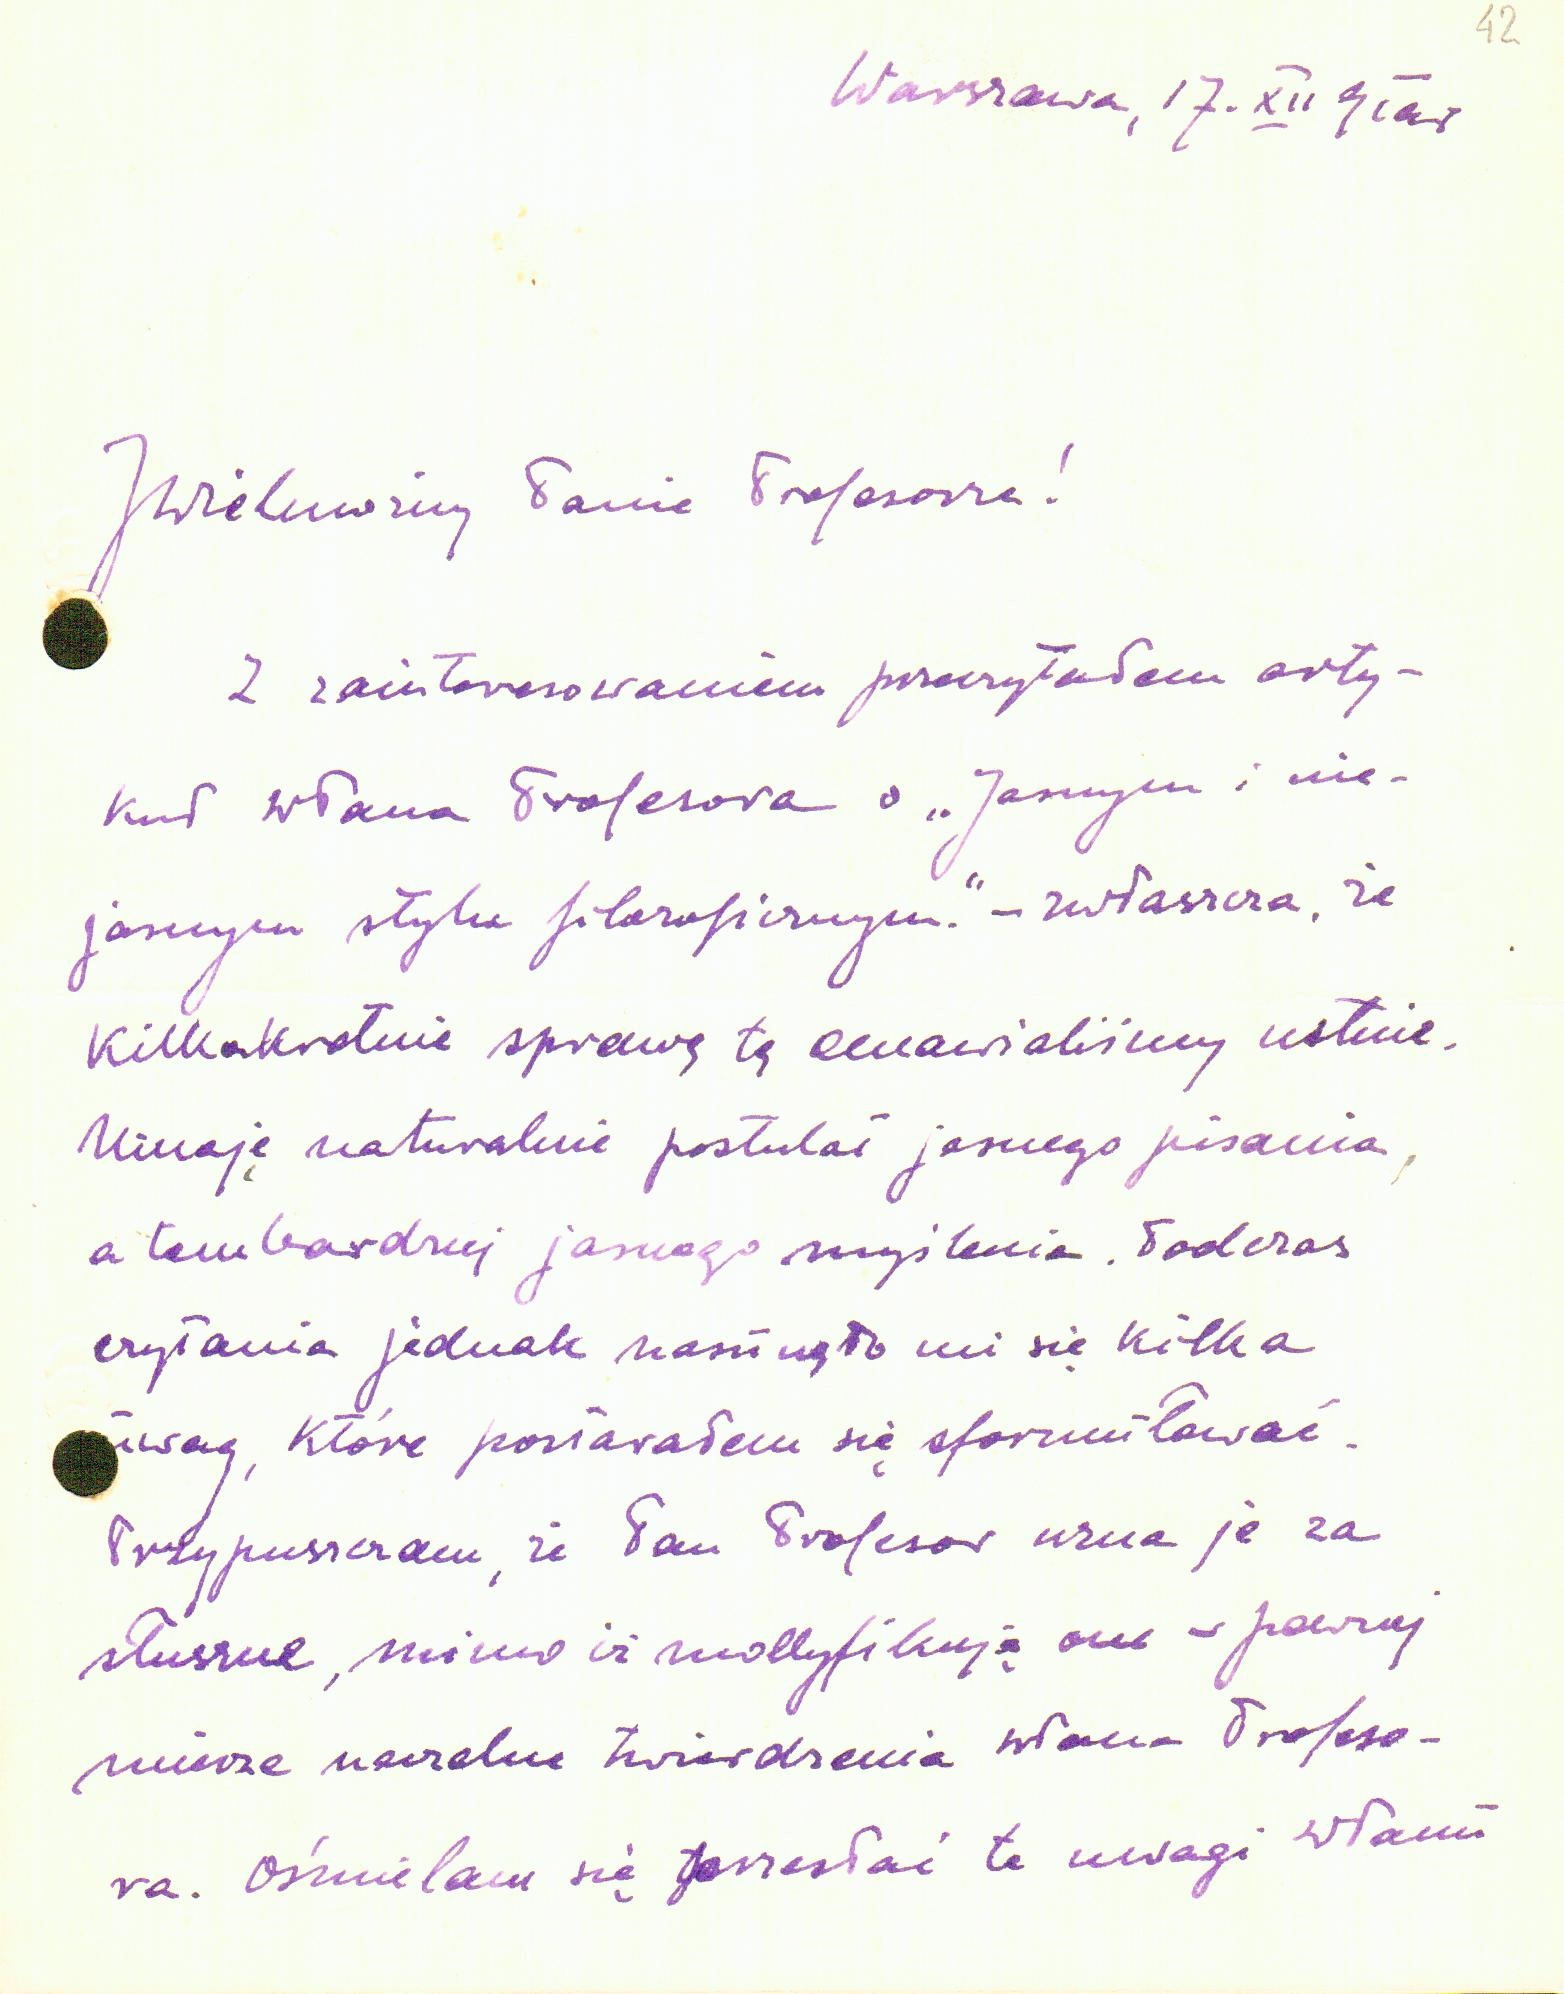 42
Warszawa, 17. XII
JWielmożny Panie Profesorze!
Z zainteresowaniem przeczytałem arty-
kuł WPana Profesora o „Jasnym i nie-
jasnym stylu filozoficznym." – zwłaszcza, że
kilkakrotnie sprawę tę omawialiśmy ustnie.
Uznaję naturalnie postulat jasnego pisania,
a tembardziej jasnego myślenia. Podczas
czytania jednak nasunęło mi się kilka
uwag, które postarałem się sformułować.
Przypuszczam, że Pan Profesor uzna je za
słuszne, mimo iż modyfikują one w pewnej
mierze naczelne twierdzenia WPana Profeso-
ra. Ośmielam się przesłać te uwagi WPanu